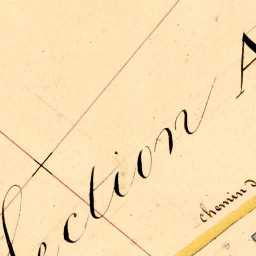 Section A
chemin d